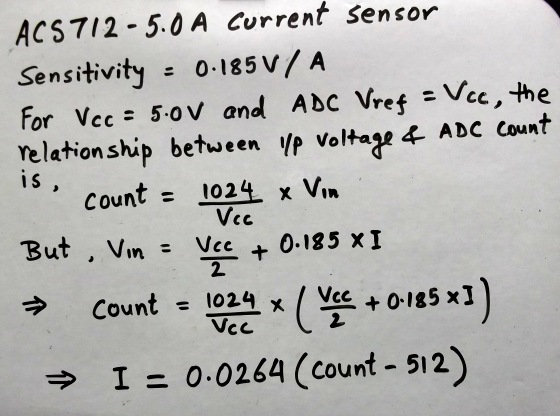 ACS712-5.0A Current Sensor
Sensitivity = 0.185V/A
For Vcc = 5.0V and ADC Vref = Vcc, the
relationship between i/p voltage & ADC count
is,
count = 1024/Vcc x Vin
But, Vin = Vcc/2 + 0.185 x I
⇒ Count = 1024/Vcc x ( Vcc/2 + 0.185 x I )
⇒ I = 0.0264 (count - 512)